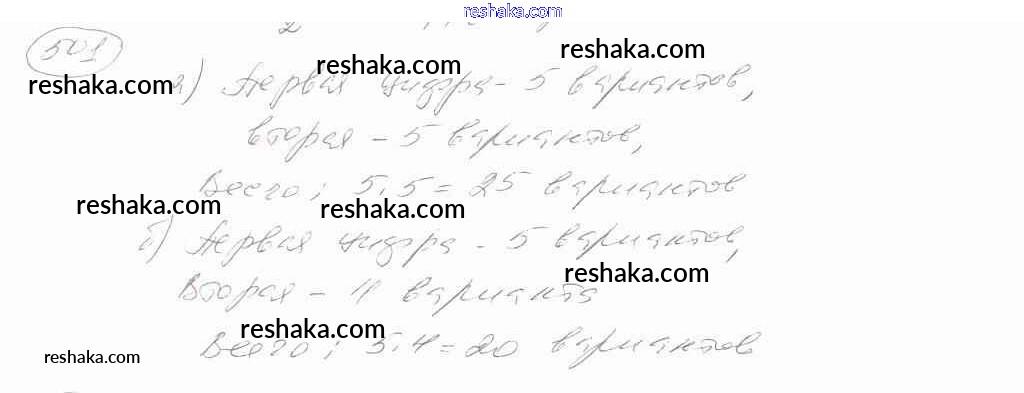 reshaka.com
501
reshaka.com
reshaka.com
reshaka.com
а) Первая цифра - 5 вариантов,
вторая - 5 вариантов,
Всего: 5·5 = 25 вариантов
reshaka.com
reshaka.com
б) Первая цифра - 5 вариантов,
reshaka.com
Вторая - 4 варианта
reshaka.com
Всего: 5·4 = 20 вариантов
reshaka.com